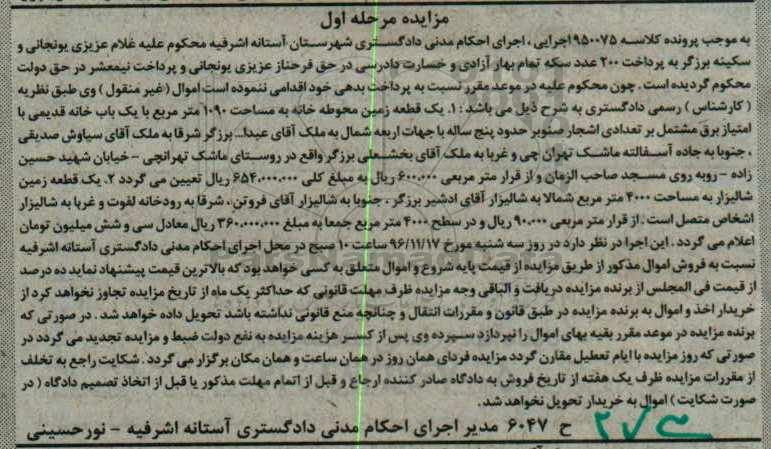 مزایده مرحله اول
به موجب پرونده کلاسه ۹۵۰۰۷۵ اجرایی ، اجرای احکام مدنی دادگستری شهرستان آستانه اشرفیه محکوم علیه غلام عزیزی یونجانی و
سکینه برزگر به پرداخت ۲۰۰ عدد سکه تمام بهار آزادی و خسارت دادرسی در حق فرحناز عزیزی یونجانی و پرداخت نیمعشر در حق دولت
محکوم گردیده است . چون محکوم علیه در موعد مقرر نسبت به پرداخت بدهی خود اقدامی ننموده است اموال ( غیر منقول ) وی طبق نظریه
( کارشناس ) رسمی دادگستری به شرح ذیل می باشد : ۱. یک قطعه زمین محوطه خانه به مساحت ۱۰۹۰ متر مربع با یک باب خانه قدیمی با
امتیاز برق مشتمل بر تعدادی اشجار صنوبر حدود پنج ساله با جهات اربعه شمال به ملک آقای عبدا... برزگر شرقا به ملک آقای سیاوش صدیقی
، جنوبا به جاده آسفالته ماشک تهران چی و غربا به ملک آقای بخشعلی برزگر واقع در روستای ماشک تهرانچی – خیابان شهید حسین
زاده – روبه روی مسجد صاحب الزمان و از قرار متر مربعی ۶۰۰.۰۰۰ ریال به مبلغ کلی ۶۵۴.۰۰۰.۰۰۰ ریال تعیین می گردد ۲. یک قطعه زمین
شالیزار به مساحت ۴۰۰۰ متر مربع شمالا به شالیزار آقای ادشیر برزگر ، جنوبا به شالیزار آقای فروتن ، شرقا به رودخانه لفوت و غربا به شالیزار
اشخاص متصل است . از قرار متر مربعی ۹۰.۰۰۰ ریال و در سطح ۴۰۰۰ متر مربع جمعا به مبلغ ۳۶۰.۰۰۰.۰۰۰ ریال معادل سی و شش میلیون تومان
اعلام می گردد . این اجرا در نظر دارد در روز سه شنبه مورخ ۹۶/۱۱/۱۷ ساعت ۱۰ صبح در محل اجرای احکام مدنی دادگستری آستانه اشرفیه
نسبت به فروش اموال مذکور از طریق مزایده از قیمت پایه شروع و اموال متعلق به کسی خواهد بود که بالاترین قیمت پیشنهاد نماید ده درصد
از قیمت فی المجلس از برنده مزایده دریافت و الباقی وجه مزایده ظرف مهلت قانونی که حداکثر یک ماه از تاریخ مزایده تجاوز نخواهد کرد از
خریدار اخذ و اموال به برنده مزایده در طبق قانون و مقررات انتقال و چنانچه منع قانونی نداشته باشد تحویل داده خواهد شد . در صورتی که
برنده مزایده در موعد مقرر بقیه بهای اموال را نپردازد سپرده وی پس از کسر هزینه مزایده به نفع دولت ضبط و مزایده تجدید می گردد در
صورتی که روز مزایده با ایام تعطیل مقارن گردد مزایده فردای همان روز در همان ساعت و همان مکان برگزار می گردد . شکایت راجع به تخلف
از مقررات مزایده ظرف یک هفته از تاریخ فروش به دادگاه صادر کننده ارجاع و قبل از اتمام مهلت مذکور یا قبل از اتخاذ تصمیم دادگاه ( در
صورت شکایت ) اموال به خریدار تحویل نخواهد شد .
ح ۶۰۴۷ مدیر اجرای احکام مدنی دادگستری آستانه اشرفیه – نورحسینی